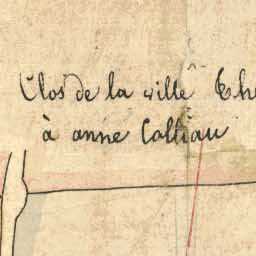 Clos de la ville The
à anne Calliau